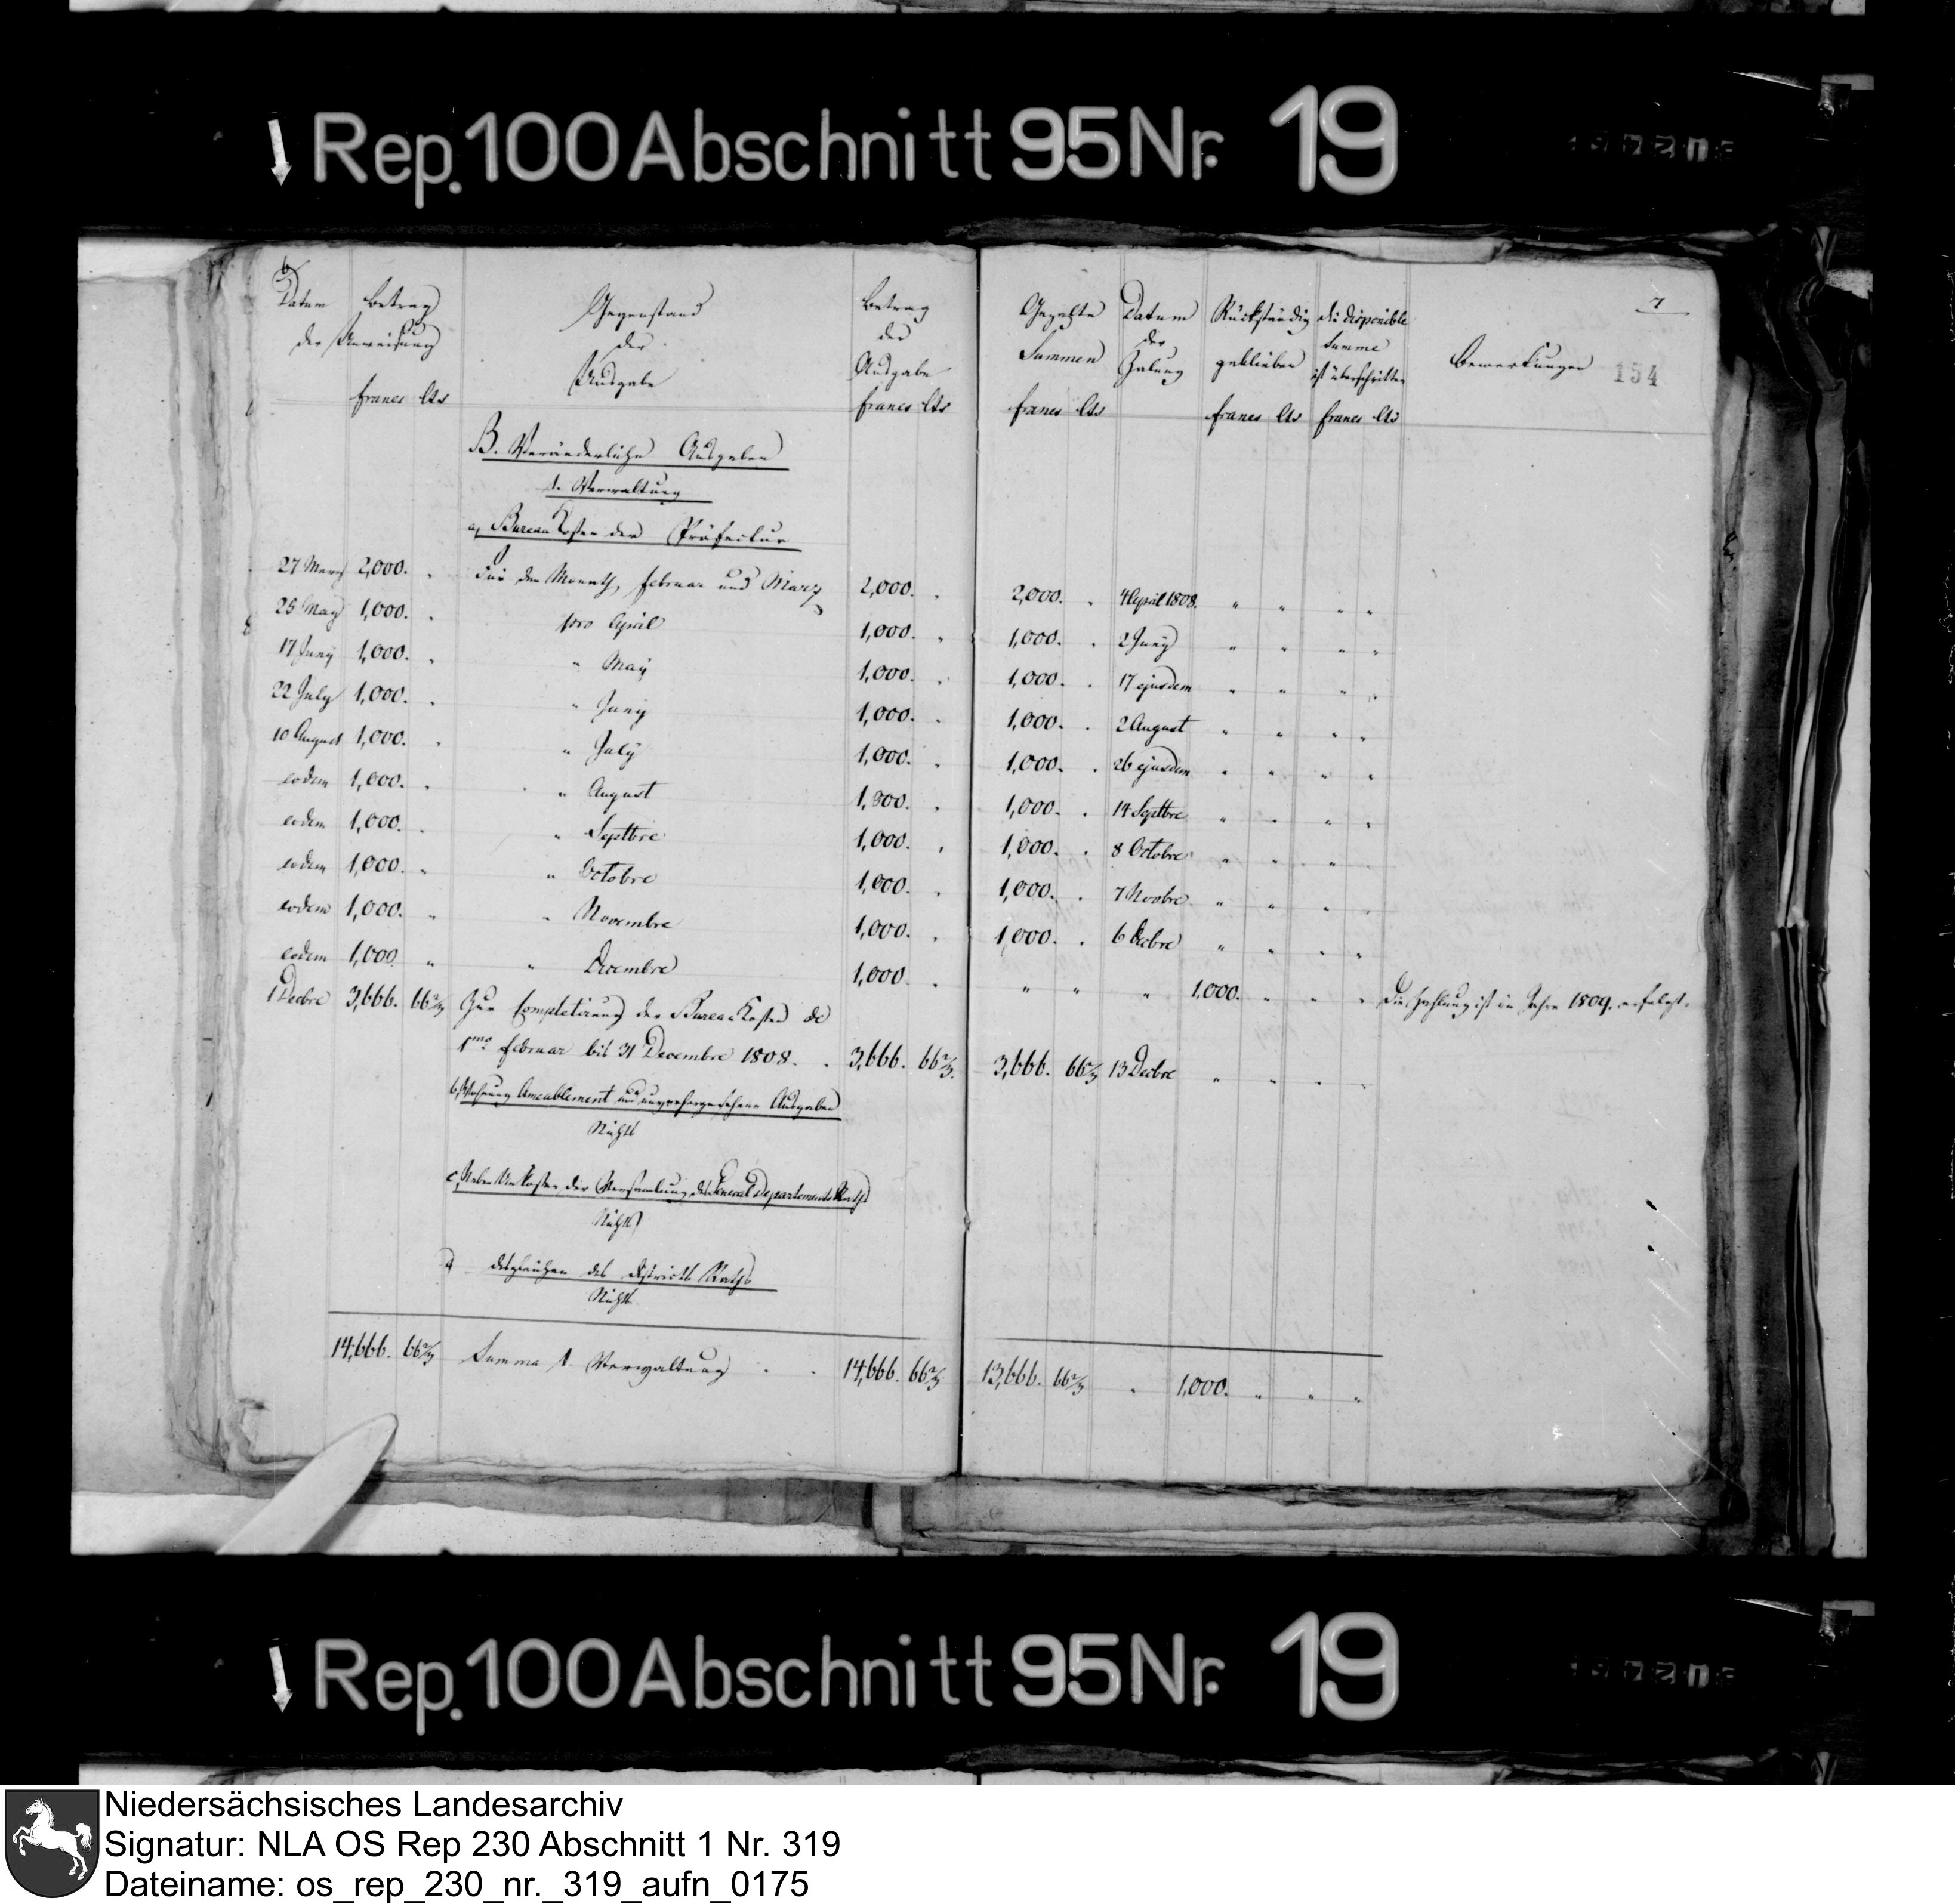 Rep. 100 Abschnitt 95 Nr. 19
6
Datum Betrag
der Anweisung
francs cts
Gegenstand
der
Ausgabe
Betrag
der
Ausgabe
francs cts
Gezahlte
Summen
francs cts
Datum
der
Zalung
Rückständig
geblieben
francs cts
die disponible
Summe
ist überschritten
francs cts
Bemerkungen
7
154
B. Veränderliche Ausgaben
1. Verwaltung
a, Bureau Kosten der Präfectur
27 Merz 2,000. " Für den Monath februar und Marz 2,000. " 2,000. " 4 April 1808. " " " "
25 May 1,000. " pro April 1,000. " 1,000. " 2 Juny " " " "
17 Juny 1,000. " " May 1,000. " 1,000. " 17 ejusdem " " " "
22 July 1,000. " " Juny 1,000. " 1,000. " 2 August " " " "
10 August 1,000. " " July 1,000. " 1,000. " 26 ejusdem " " " "
eodem 1,000. " " August 1,000. " 1,000. " 14 Septbre " " " "
eodem 1,000. " " Septbre 1,000. " 1,000. " 8 Octobre " " " "
eodem 1,000. " " Octobre 1,000. " 1,000. " 7 Novbre " " " "
eodem 1,000. " " Novembre 1,000. " 1,000. " 6 Decbre " " " "
eodem 1,000 " " Decembre 1,000 " " " " 1,000. " " " Die Zahlung ist im Jahre 1809. erfolgt.
1 Decbre 3,666. 66 2/3 Zur Completirung der Bureau Kosten de
1mo februar bis 31 Decembre 1808. . 3,666. 66 2/3. 3,666. 66 2/3 13 Decbre " " " "
b, Ameublement und unvorhergesehene Ausgaben
Nichts
c, Neben Unkosten der Versamlung des General Departements Raths
Nichts
d desgleichen des Districts Raths
Nichts
14,666. 66 2/3 Summa 1. Verwaltung . . 14,666. 66 2/3 13,666. 66 2/3 " 1,000. " " "
Rep. 100 Abschnitt 95 Nr. 19
Niedersächsisches Landesarchiv
Signatur: NLA OS Rep 230 Abschnitt 1 Nr. 319
Dateiname: os_rep_230_nr._319_aufn_0175